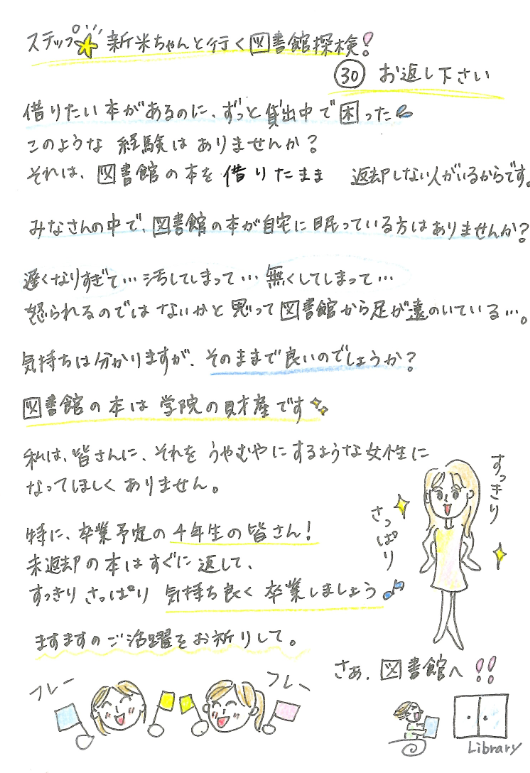 ステップ新米ちゃんと行く図書館探検!
㉚ お返し下さい
借りたい本があるのに、ずっと貸出中で困った
このような 経験は ありませんか?
それは、図書館の本を 借りたまま 返却しない人がいるからです。
みなさんの中で、図書館の本が自宅に眠っている方はありませんか?
遅くなりすぎて…汚してしまって…無くしてしまって…
怒られるのではないかと思って図書館から足が遠のいている…。
気持ちは分かりますが、そのままで良いのでしょうか?
図書館の本は 学院の財産です
私は、皆さんに、それを うやむやに するような女性に
なってほしく ありません。
特に、卒業予定の 4年生の皆さん!
未返却の本はすぐに返して、
すっきり さっぱり 気持ち良く 卒業しましょう
すっきり
さっぱり
ますますのご活躍をお祈りして。
フレー フレー
さあ、図書館へ!!
Library